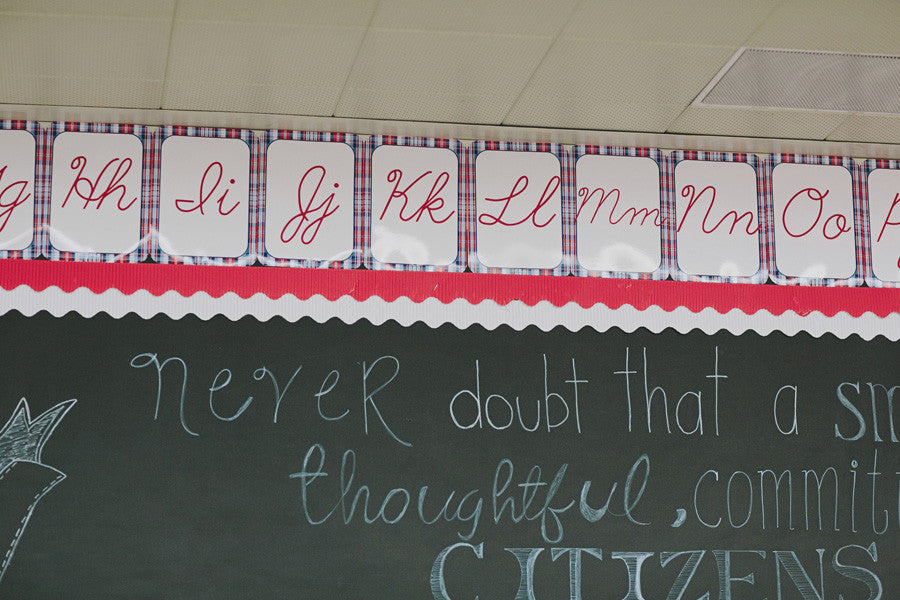 Hh Ii Jj Kk Ll Mm Nn Oo
never doubt that a
thoughtful,
CITIZENS